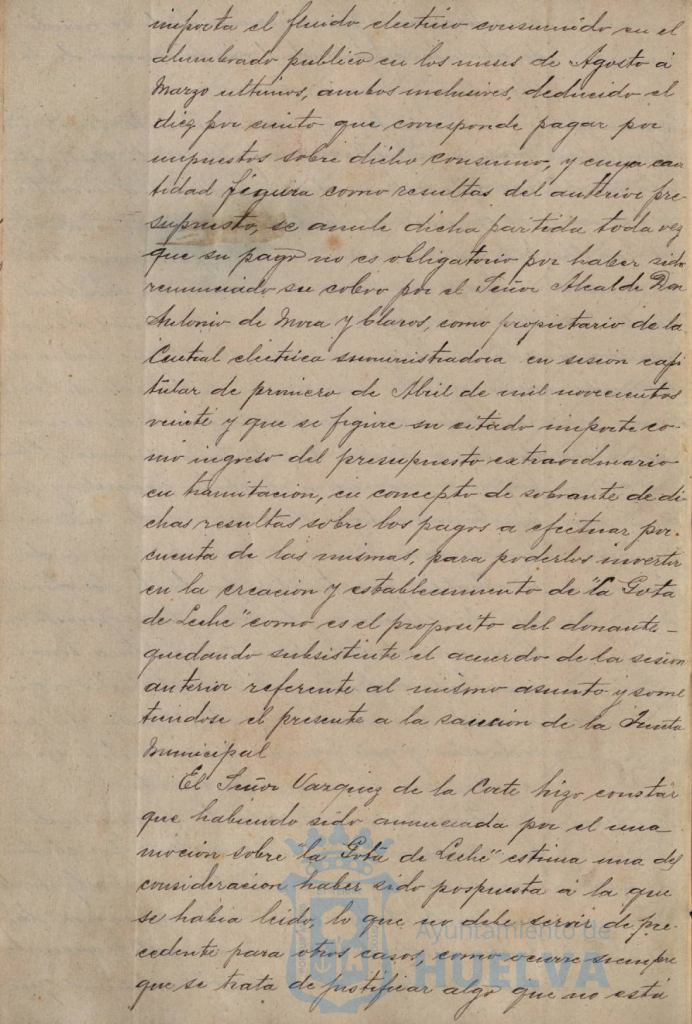 importa el fluido electrico consumido en el
alumbrado publico en los meses de Agosto á
Marzo ultimos, ambos inclusives, deducido el
diez por ciento que corresponde pagar por
impuestos sobre dicho consumo, y cuya can
tidad figura como resultas del anterior pre-
supuesto, se anule dicha partida toda vez
que su pago no es obligatorio por haber sido
renunciado su cobro por el Señor Alcalde Don
Antonio de Mora y Claros, como propietario de la
Central electrica suministradora en sesion capi
tular de primero de Abril de mil novecientos
veinte y que se figure su citado importe co-
mo ingreso del presupuesto extraordinario
en tramitacion, en concepto de sobrante de di
chas resultas sobre los pagos a efectuar por
cuenta de las mismas, para poderlos invertir
en la creacion y establecimiento de "la Gota
de Leche" como es el proposito del donante-
quedando subsistente el acuerdo de la sesion
anterior referente al mismo asunto y some
tiendose el presente a la sancion de la Junta
Municipal
El Señor Vazquez de la Corte hizo constar
que habiendo sido anunciada por el una
mocion sobre "la Gota de Leche" estima una des
consideracion haber sido pospuesta á la que
se habia leido, lo que no debe servir de pre-
cedente para otros casos, como ocurre siempre
que se trata de justificar algo que no está
Ayuntamiento de
HUELVA